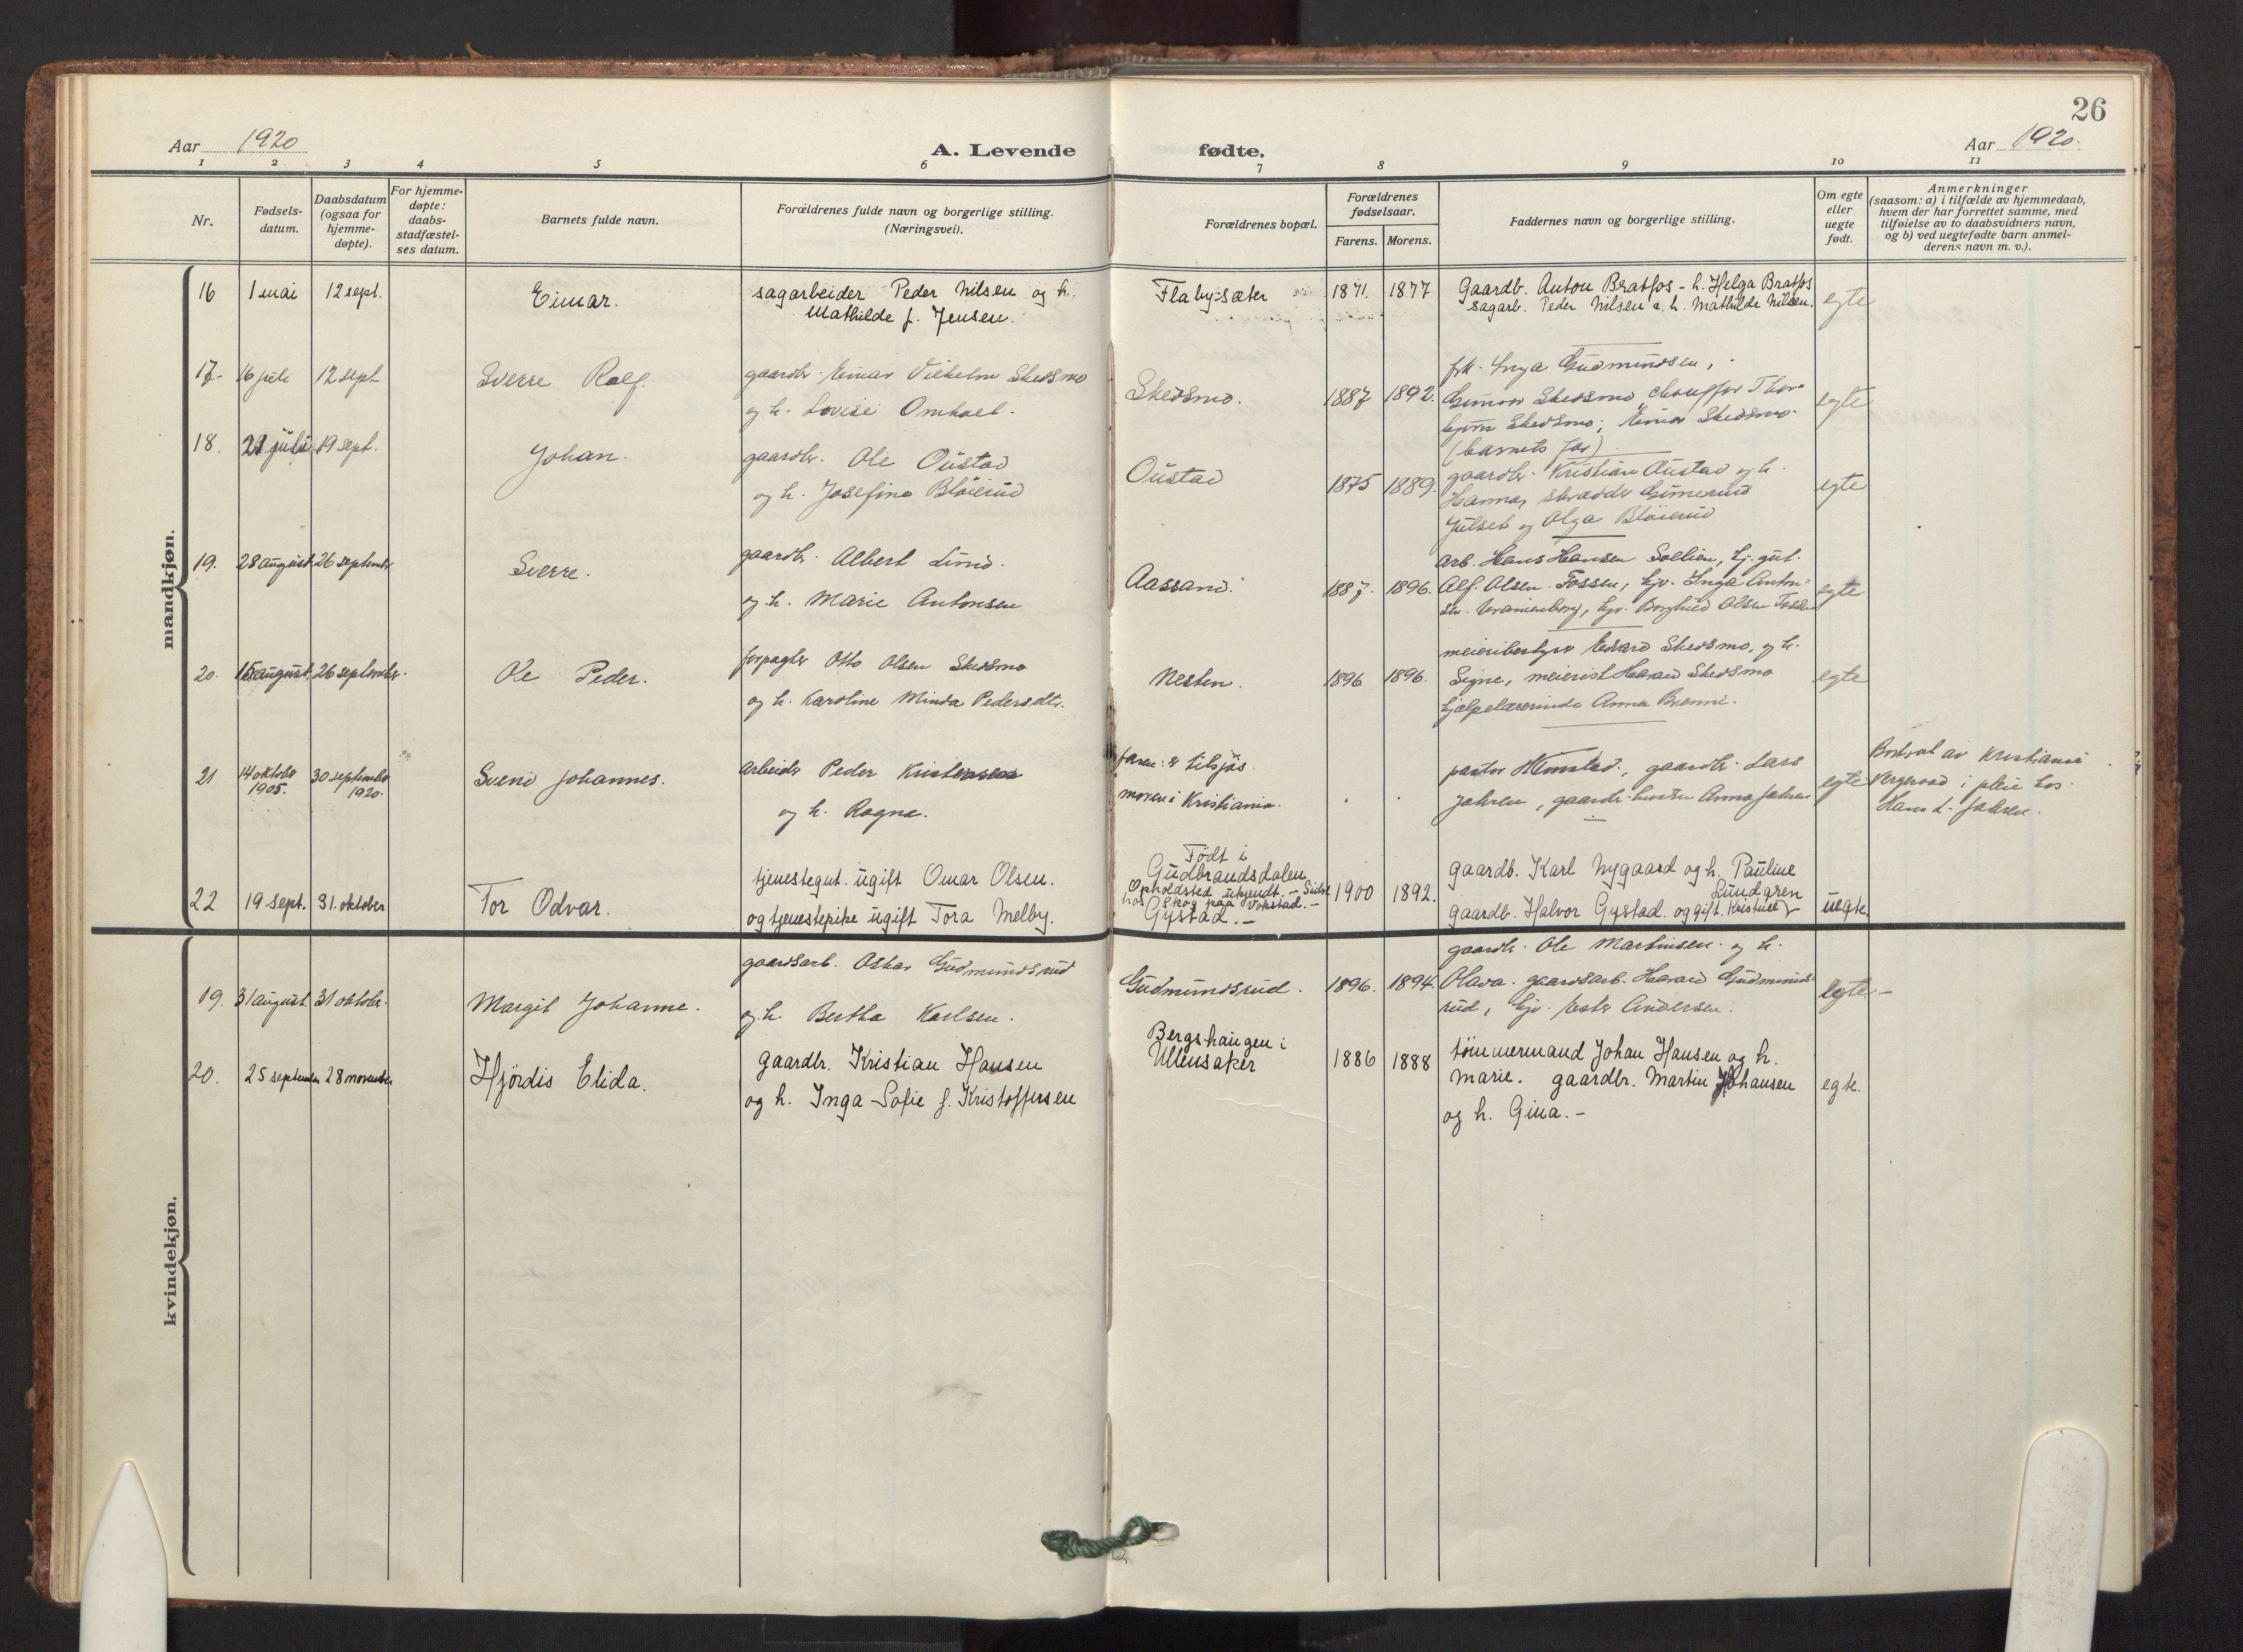 26
Aar 1920
A. Levende fødte.
Aar 1920.
1 2 3 4 5 6 7 8 9 10 11
Nr.
Fødsels-
datum.
Daabsdatum
(ogsaa for
hjemme-
døpte).
For hjemme-
døpte:
daabs-
stadfæstel-
ses datum.
Barnets fulde navn.
Forældrenes fulde navn og borgerlige stilling.
(Næringsvei).
Forældrenes bopæl.
Forældrenes
fødselsaar.
Farens. Morens.
Faddernes navn og borgerlige stilling.
Om egte
eller
uegte
født.
Anmerkninger
(saasom: a) i tilfælde av hjemmedaab,
hvem der har forrettet samme, med
tilføielse av to daabsvidners navn,
og b) ved uegtefødte barn anmel-
derens navn m. v.).
mandkjøn.
16 1 mai 12 sept. Einar.
sagarbeider Peder Nilsen og h.
Mathilde f. Jensen.
Flaby-sæter 1871. 1877
Gaardb. Anton Bratfos - h. Helga Bratfos
sagarb. Peder Nilsen o. h. Mathilde Nilsen.
egte
17. 16 juli 12 sept. Sverre Rolf.
gaardbr. Einar Vilhelm Skedsmo
og h. Lovise Omholt.
Skedsmo. 1887 1892.
frk. Inga Gudmundsen,
Gunnar Skedsmo, chauffør Thor-
bjørn Skedsmo; Einar Skedsmo
(barnets far).
egte
18. 21 juli 19 sept. Johan.
gaardbr. Ole Oustad
og h. Josefine Bløierud
Oustad 1875 1889.
gaardbr. Kristian Austad og h.
Hanna, skrædder
Julset og Olga Bløierud
egte
19. 28 august 26 september Sverre.
gaardbr. Albert Lund.
og h. Marie Antonsen
Aassand. 1887. 1896.
arb. Hans Hansen Sollien, tj. gut.
Alf. Olsen Fossen, tjp. Inga Anton-
sen. Uranienborg, tjp. Borghild Olsen Fossen
egte
20. 15 august 26 september. Ole Peder.
forpagter Otto Olsen Skedsmo
og h. Karoline Minda Pedersdtr.
Nesten. 1896 1896.
meieribestyrer Edvard Skedsmo, og h.
Signe, meierist Harald Skedsmo
hjælpelærerinde Anna Brenni.
egte
21 14 oktober 1905. 30 september 1920. Svend Johannes.
Arbeider Peder Kristensen
og h. Ragna.
faren: tilsjøs
moren i Kristiania.
pastor Hemstad, gaardbr. Lars
Jahren, gaardbr. hustru Anna Jahren
egte
Bortsat av Kristiania
Vergeraad i pleie hos
Hans L. Jahren.
22 19 sept. 31. oktober Tor Odvar.
tjenestegut. ugift Omar Olsen.
og tjenestepike ugift Tora Melby.
Født i
Gudbrandsdalen
Opholdsted ukjendt. - Sidst
hos Skog paa Vokstad. -
Gystad. -
1900 1892.
gaardb. Karl Nygaard og h. Pauline
Lundgren
gaardb. Halvor Gystad. og gift. Kristine
uegte.
kvindekjøn.
19. 31 august. 31 oktober. Margit Johanne.
gaardsarb. Oskar Gudmundsrud
og h. Bertha Karlsen.
Gudmundsrud. 1896. 1894.
gaardbr. Ole Martinsen og h.
Olava. gaardsarb. Harald Gudmunds-
rud, tjp. Ester Andersen.
egte. -
20. 25 september 28 november Hjördis Elida.
gaardbr. Kristian Hansen
og h. Inga Sofie f. Kristoffersen
Bergshaugen i
Ullensaker
1886 1888
tömmermand Johan Hansen og h.
Marie. gaardbr. Martin Johansen
og h. Gina. -
egte.